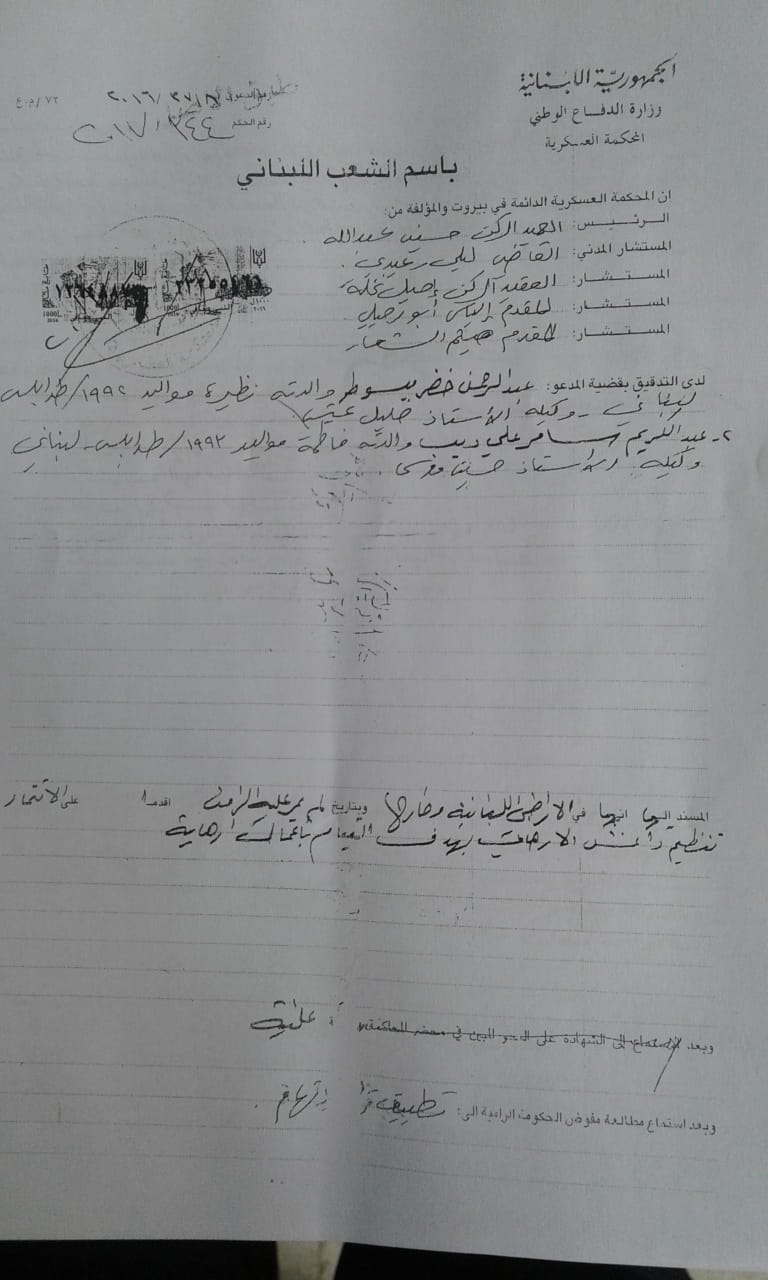 الجمهورية اللبنانية
وزارة الدفاع الوطني
المحكمة العسكرية
٧٢/م.ع
رقم الدعوى ٢٠١٦/٣٧١٨
رقم الحكم ٢٠١٧/٣٤٤
باسم الشعب اللبناني
ان المحكمة العسكرية الدائمة في بيروت والمؤلفة من:
الرئيس: العميد الركن حسين عبدالله
المستشار المدني: القاضي ليلى رعيدي
المستشار: العقيد الركن
المستشار: المقدم الياس أبو
المستشار: المقدم هيثم الشعار
لدى التدقيق بقضية المدعو: عبد الرحمن خضر بيسوطر والدته نظيرة مواليد ١٩٩٢/طرابلس
لبناني - وكيله الأستاذ خليل
٢- عبد الكريم سامر علي ديب والدته فاطمة مواليد ١٩٩٣/طرابلس - لبناني
وكيله الاستاذ
المسند اليهما انهما في الاراضي اللبنانية وخارجها وبتاريخ لم يمر عليه الزمن اقدما على الانتماء
تنظيم داعش الارهابي بهدف القيام بأعمال ارهابية
وبعد علنية
وبعد استماع مطالعة مفوض الحكومة الرامية الى: تطبيق